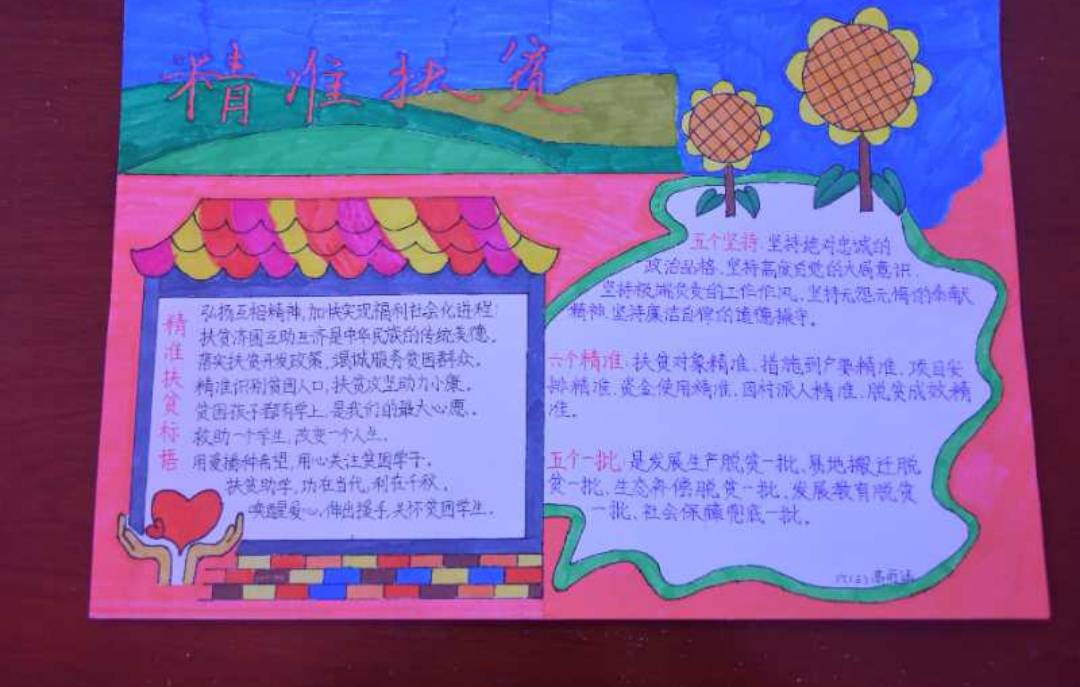 精准扶贫
精准扶贫标语
弘扬互相精神，加快实现福利社会化进程！
扶贫济困互助互济是中华民族的传统美德。
落实扶贫开发政策，竭诚服务贫困群众。
精准识别贫困人口，扶贫攻坚助力小康。
贫困孩子都有学上，是我们的最大心愿。
救助一个学生，改变一个人生。
用爱播种希望，用心关注贫困学子。
扶贫助学，功在当代，利在千秋。
唤醒爱心，伸出援手，关怀贫困学生。
五个坚持：坚持绝对忠诚的
政治品格、坚持高度自觉的大局意识、
坚持极端负责的工作作风、坚持无怨无悔的奉献
精神、坚持廉洁自律的道德操守。
六个精准：扶贫对象精准、措施到户要精准、项目安
排精准、资金使用精准、因村派人精准、脱贫成效精
准。
五个一批：是发展生产脱贫一批、易地搬迁脱
贫一批、生态补偿脱贫一批、发展教育脱贫
一批、社会保障兜底一批。
六(三)